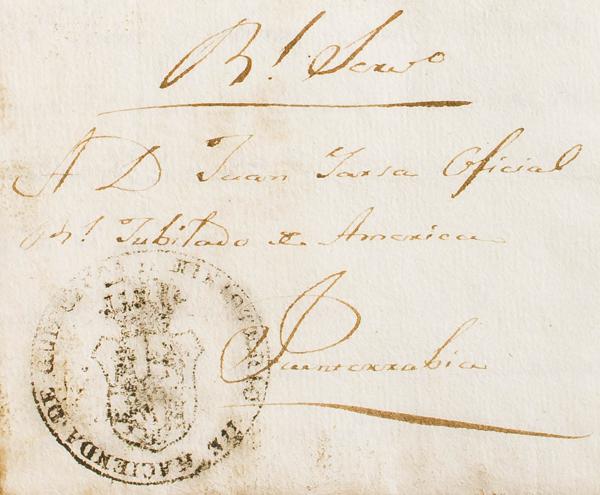 Rl. Servo
A D Juan Jarsa Oficial
Rl. Jubilado de America
Fuenterrabia
HACIENDA DE